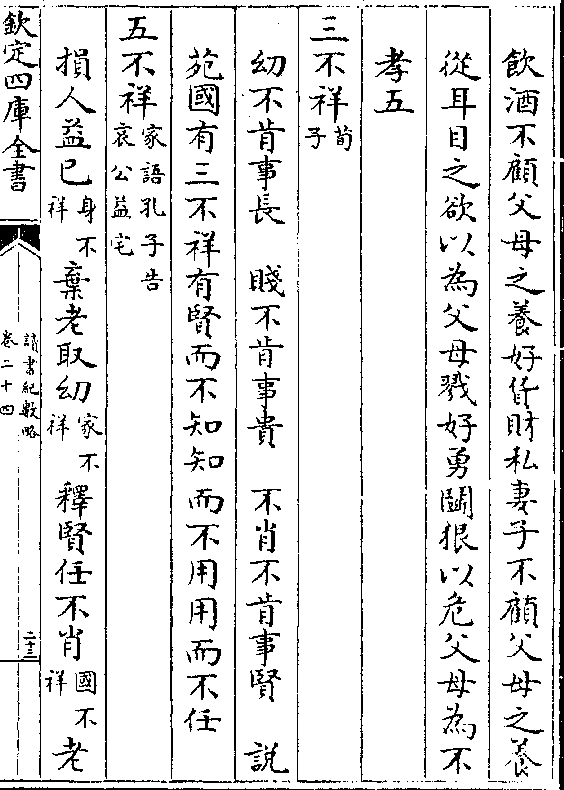 飲酒不顧父母之養好貨財私妻子不顧父母之養
從耳目之欲以為父母戮好勇鬭狠以危父母為不
孝五
三不祥荀子
幼不肯事長　賤不肯事貴　不肖不肯事賢　說
苑國有三不祥有賢而不知知而不用用而不任
五不祥家語孔子告哀公益宅
損人益已身不祥棄老取幼家不祥釋賢任不肖國不祥老
欽定四庫全書
讀書紀數略
卷二十四
二十三